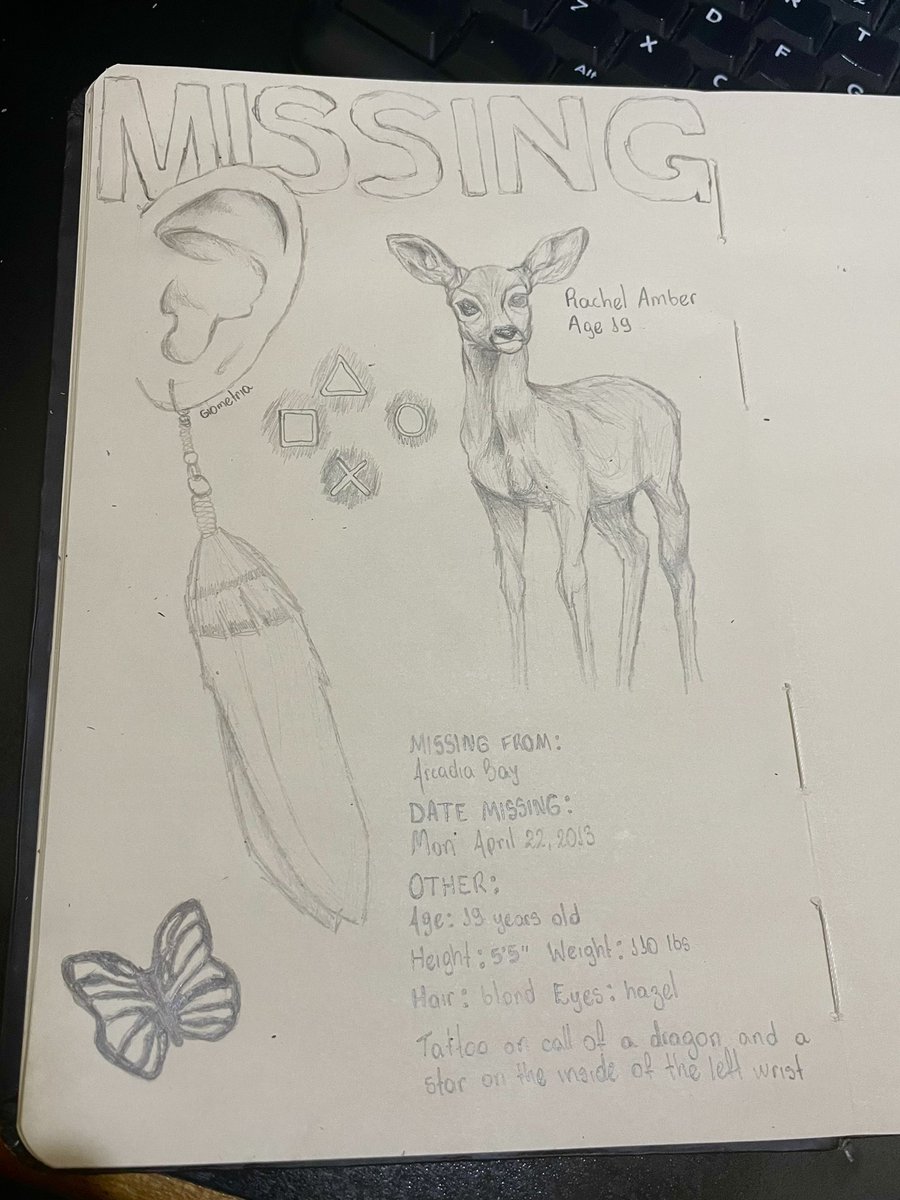 MISSING
Rachel Amber
Age 19
Giometria
MISSING FROM:
Arcadia Bay
DATE MISSING:
Mon April 22, 2013
OTHER:
Age: 19 years old
Height: 5'5" Weight: 110 lbs
Hair: blond Eyes: hazel
Tattoo on calf of a dragon and a
star on the inside of the left wrist
Z
D
R
T
X
F
Alt
C
G